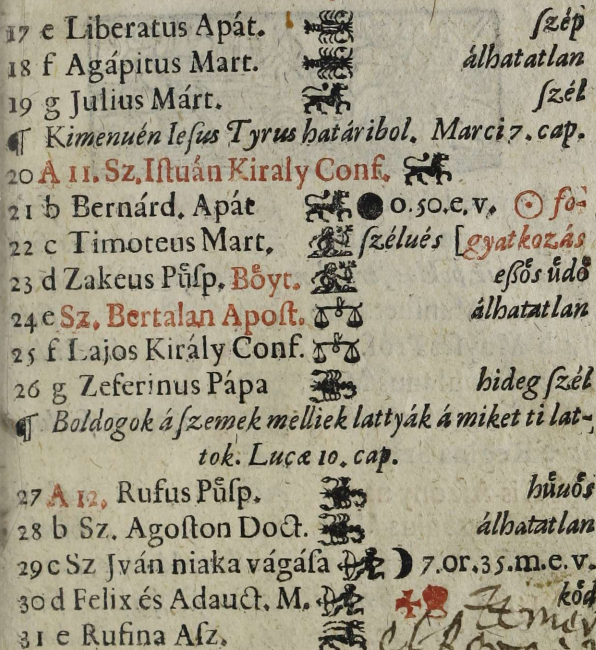 17 e Liberatus Apát. ſzép
18 f Agápitus Mart. álhatatlan
19 g Julius Márt. ſzél
¶ Kimenuén Ieſus Tyrus határibol. Marci 7. cap.
20 A 11. Sz. Iſtuán Kiraly Conf.
21 b Bernárd. Apát 0.50.e.v. fo-
22 c Timoteus Mart. ſzélués [gyatkozás
23 d Zakeus Pûſp. Bőyt. eßős ũdő
24 e Sz. Bertalan Apoſt. álhatatlan
25 f Lajos Király Conf.
26 g Zeferinus Pápa hideg ſzél
¶ Boldogok á ſzemek melliek lattyák á miket ti lat-
tok. Lucæ 10. cap.
27 A 12. Rufus Pûſp. hűuős
28 b Sz. Agoſton Doct. álhatatlan
29 c Sz Jván niaka vágáſa ☽ 7.or.35.m.e.v.
30 d Felix és Adauct. M. kőd
31 e Rufina Aſz.